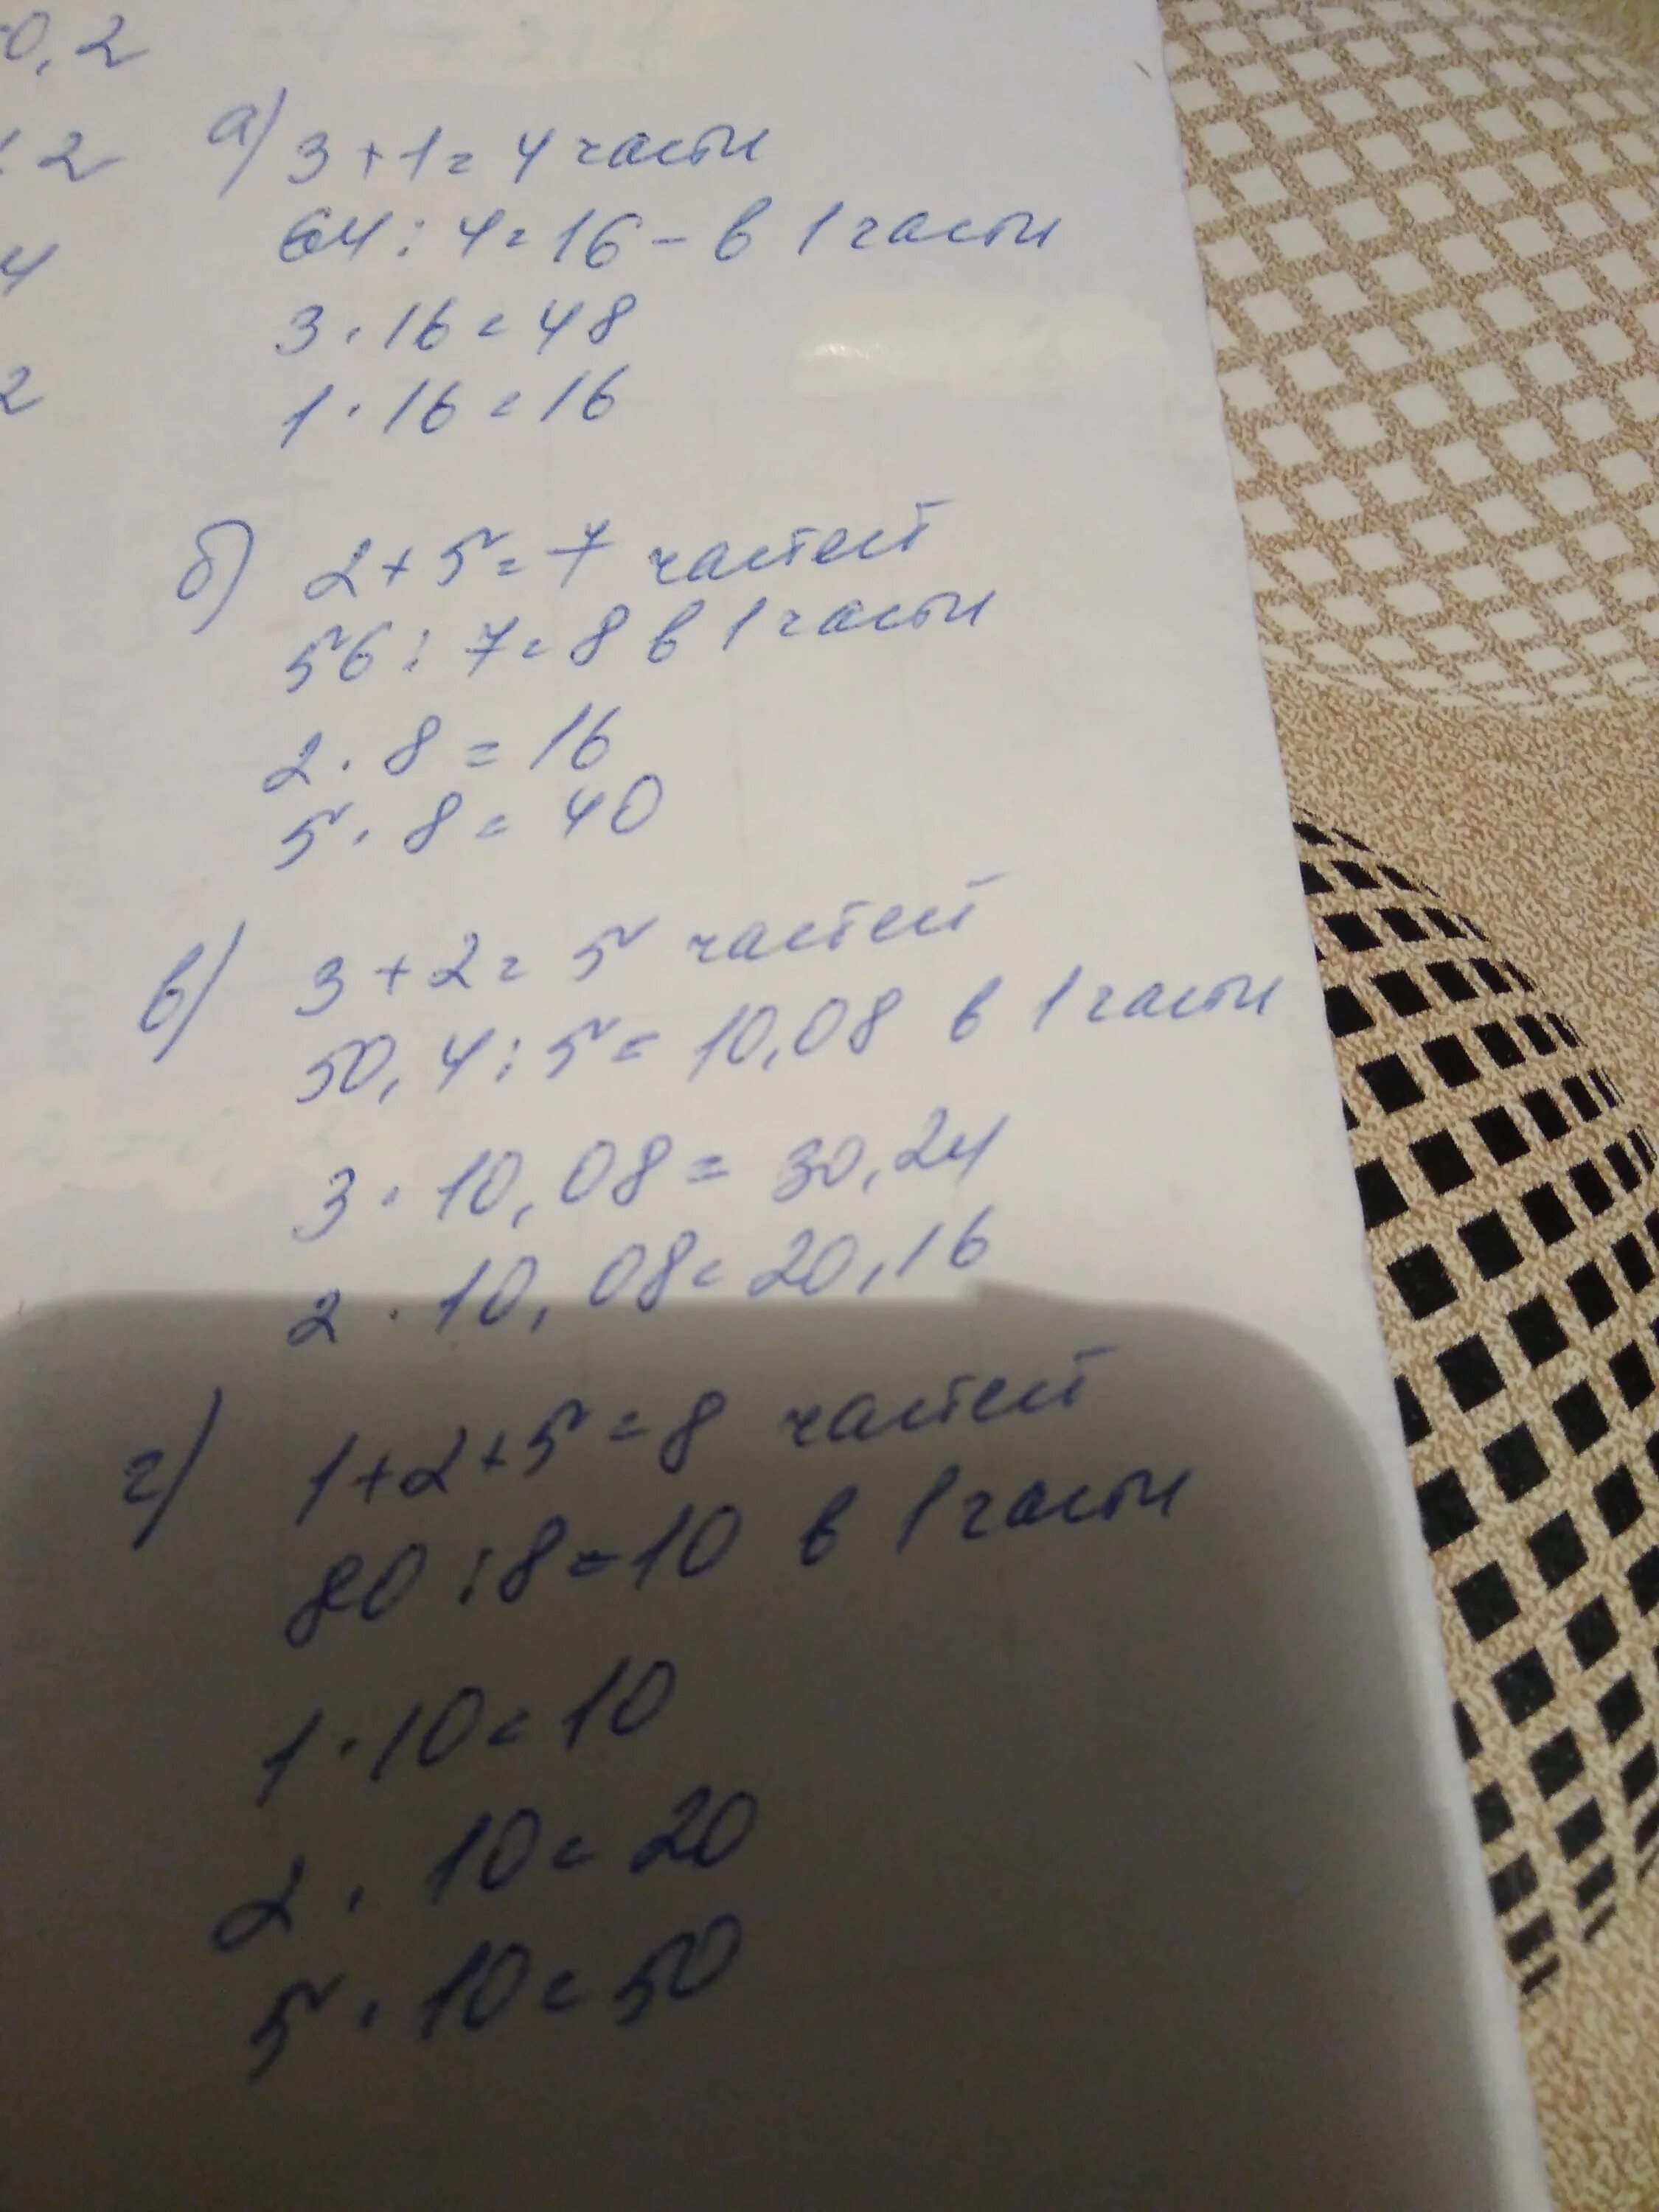 0,2
2
4
2
а) 3+1=4 части
64:4=16 - в 1 части
3·16=48
1·16=16
б) 2+5=7 частей
56:7=8 в 1 части
2·8=16
5·8=40
в) 3+2=5 частей
50,4:5=10,08 в 1 части
3·10,08=30,24
2·10,08=20,16
г) 1+2+5=8 частей
80:8=10 в 1 части
1·10=10
2·10=20
5·10=50